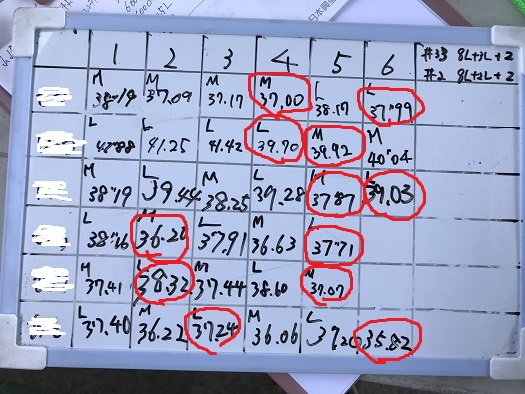 1 2 3 4 5 6 #33 8L+3L+2
#2 8L+2L+2
M 38"19 M 37.09 M 37.17 M 37.00 L 38.17 L 37"99
L 42"88 L 41.25 L 41.42 L 39.70 M 39.92 M 40"04
M 38"19 L 39.44 M 38.25 L 39.28 M 37"87 L 39.03
L 38"26 M 36.20 L 37.91 M 36.63 L 37"71
M 37.41 L 38.32 M 37.44 L 38.60 M 37.07
L 37.40 M 36.22 L 37.24 M 36.06 L 37.20 35.82